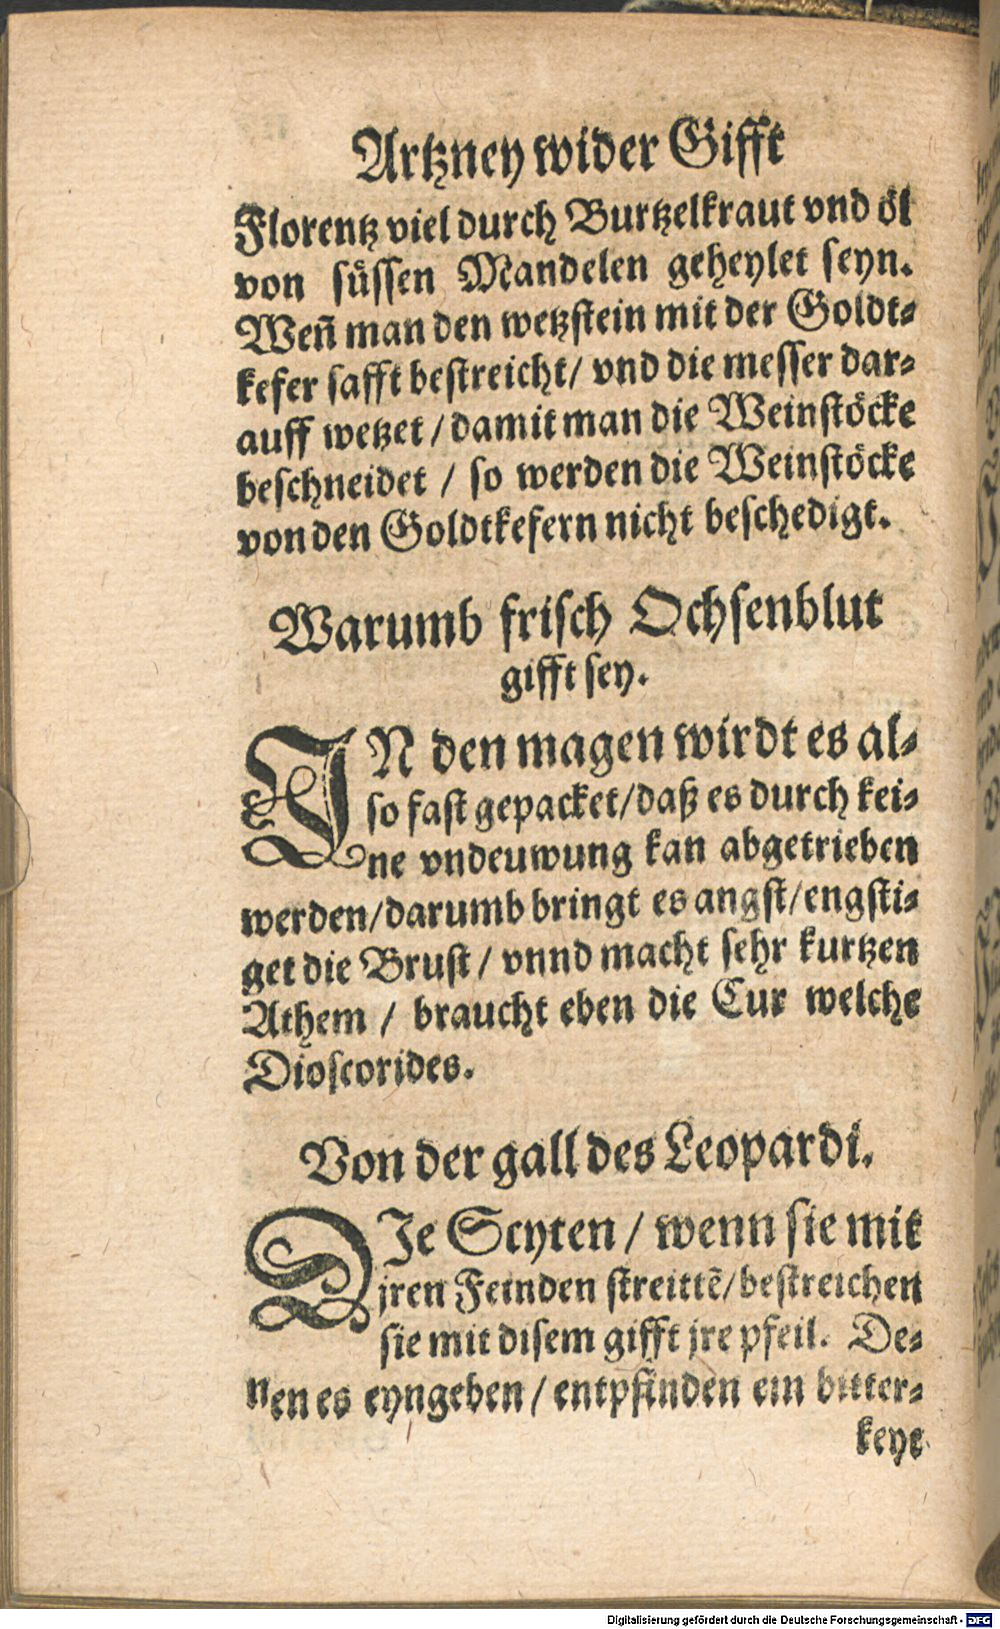 Artzney wider Gifft
Florentz viel durch Burtzelkraut vnd öl
von süssen Mandelen geheylet seyn.
Weñ man den wetzstein mit der Goldt-
kefer safft bestreicht/ vnd die messer dar-
auff wetzet / damit man die Weinstöcke
beschneidet / so werden die Weinstöcke
von den Goldtkefern nicht beschedigt.
Warumb frisch Ochsenblut
gifft sey.
IN den magen wirdt es al-
so fast gepacket/daß es durch kei-
ne vndeuwung kan abgetrieben
werden/darumb bringt es angst/engsti-
get die Brust / vnnd macht sehr kurtzen
Athem / braucht eben die Cur welche
Dioscorides.
Von der gall des Leopardi.
DJe Scyten / wenn sie mit
jren Feinden streittẽ/bestreichen
sie mit disem gifft jre pfeil. De-
nen es eyngeben / entpfinden ein bitter-
keyt
Digitalisierung gefördert durch die Deutsche Forschungsgemeinschaft - DFG